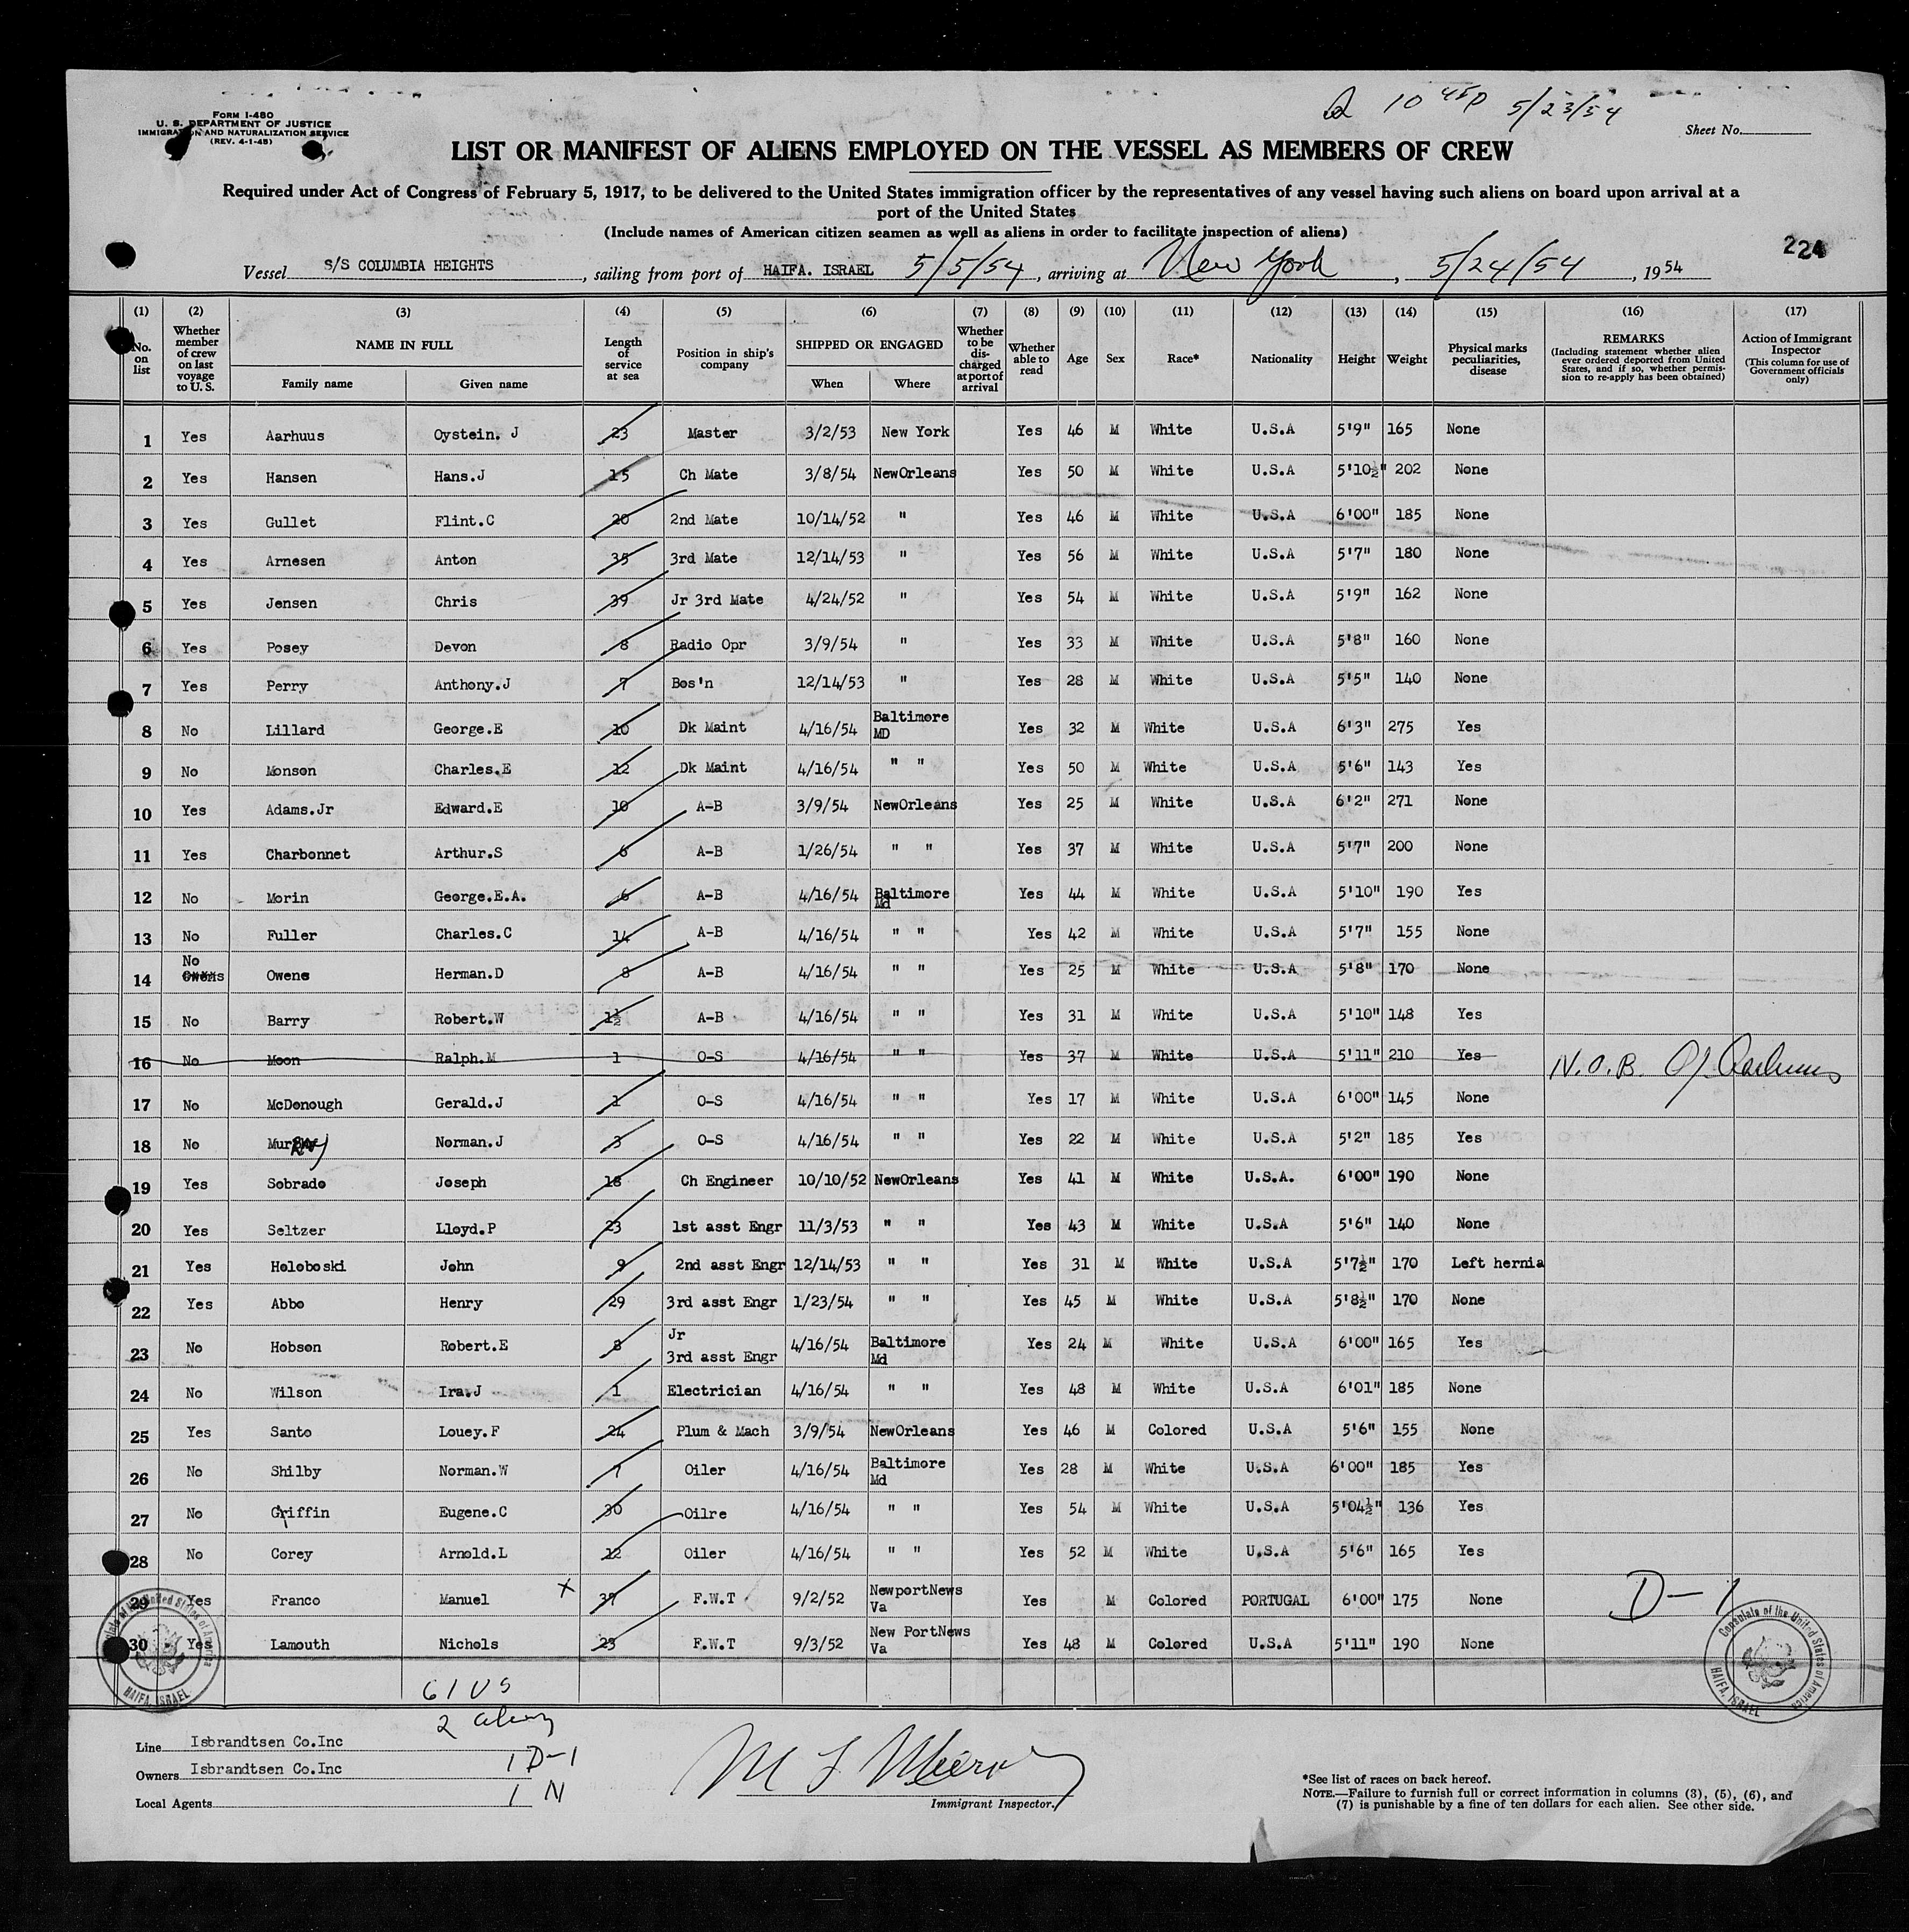 FORM I-480
U. S. DEPARTMENT OF JUSTICE
IMMIGRATION AND NATURALIZATION SERVICE
(REV. 4-1-45)
10 45p 5/23/54
Sheet No.
LIST OR MANIFEST OF ALIENS EMPLOYED ON THE VESSEL AS MEMBERS OF CREW
Required under Act of Congress of February 5, 1917, to be delivered to the United States immigration officer by the representatives of any vessel having such aliens on board upon arrival at a
port of the United States
(Include names of American citizen seamen as well as aliens in order to facilitate inspection of aliens)
224
Vessel S/S COLUMBIA HEIGHTS, sailing from port of HAIFA. ISRAEL 5/5/54, arriving at New York, 5/24/54, 1954
(1) (2) (3) (4) (5) (6) (7) (8) (9) (10) (11) (12) (13) (14) (15) (16) (17)
No. on list
Whether member of crew on last voyage to U. S.
NAME IN FULL
Family name Given name
Length of service at sea
Position in ship's company
SHIPPED OR ENGAGED
When Where
Whether to be discharged at port of arrival
Whether able to read
Age Sex Race* Nationality Height Weight
Physical marks peculiarities, disease
REMARKS
(Including statement whether alien ever ordered deported from United States, and if so, whether permission to re-apply has been obtained)
Action of Immigrant Inspector
(This column for use of Government officials only)
1 Yes Aarhuus Oystein. J 23 Master 3/2/53 New York Yes 46 M White U.S.A 5'9" 165 None
2 Yes Hansen Hans.J 15 Ch Mate 3/8/54 NewOrleans Yes 50 M White U.S.A 5'10½" 202 None
3 Yes Gullet Flint.C 20 2nd Mate 10/14/52 " Yes 46 M White U.S.A 6'00" 185 None
4 Yes Arnesen Anton 35 3rd Mate 12/14/53 " Yes 56 M White U.S.A 5'7" 180 None
5 Yes Jensen Chris 39 Jr 3rd Mate 4/24/52 " Yes 54 M White U.S.A 5'9" 162 None
6 Yes Posey Devon 8 Radio Opr 3/9/54 " Yes 33 M White U.S.A 5'8" 160 None
7 Yes Perry Anthony.J 7 Bos'n 12/14/53 " Yes 28 M White U.S.A 5'5" 140 None
8 No Lillard George.E 10 Dk Maint 4/16/54 Baltimore MD Yes 32 M White U.S.A 6'3" 275 Yes
9 No Monson Charles.E 12 Dk Maint 4/16/54 " " Yes 50 M White U.S.A 5'6" 143 Yes
10 Yes Adams.Jr Edward.E 10 A-B 3/9/54 NewOrleans Yes 25 M White U.S.A 6'2" 271 None
11 Yes Charbonnet Arthur.S 6 A-B 1/26/54 " " Yes 37 M White U.S.A 5'7" 200 None
12 No Morin George.E.A. 6 A-B 4/16/54 Baltimore Md Yes 44 M White U.S.A 5'10" 190 Yes
13 No Fuller Charles.C 14 A-B 4/16/54 " " Yes 42 M White U.S.A 5'7" 155 None
14 No Owens Herman.D 8 A-B 4/16/54 " " Yes 25 M White U.S.A 5'8" 170 None
15 No Barry Robert.W 1½ A-B 4/16/54 " " Yes 31 M White U.S.A 5'10" 148 Yes
16 No Moon Ralph.M 1 O-S 4/16/54 " " Yes 37 M White U.S.A 5'11" 210 Yes N.O.B. O.J. Aarhuus
17 No McDonough Gerald.J 1 O-S 4/16/54 " " Yes 17 M White U.S.A 6'00" 145 None
18 No Norman.J 3 O-S 4/16/54 " " Yes 22 M White U.S.A 5'2" 185 Yes
19 Yes Sobrado Joseph 18 Ch Engineer 10/10/52 NewOrleans Yes 41 M White U.S.A. 6'00" 190 None
20 Yes Seltzer Lloyd.P 23 1st asst Engr 11/3/53 " " Yes 43 M White U.S.A 5'6" 140 None
21 Yes Holoboski John 9 2nd asst Engr 12/14/53 " " Yes 31 M White U.S.A 5'7½" 170 Left hernia
22 Yes Abbo Henry 29 3rd asst Engr 1/23/54 " " Yes 45 M White U.S.A 5'8½" 170 None
23 No Hobson Robert.E 8 Jr 3rd asst Engr 4/16/54 Baltimore Md Yes 24 M White U.S.A 6'00" 165 Yes
24 No Wilson Ira.J 1 Electrician 4/16/54 " " Yes 48 M White U.S.A 6'01" 185 None
25 Yes Santo Louey.F 24 Plum & Mach 3/9/54 NewOrleans Yes 46 M Colored U.S.A 5'6" 155 None
26 No Shilby Norman.W 7 Oiler 4/16/54 Baltimore Md Yes 28 M White U.S.A 6'00" 185 Yes
27 No Griffin Eugene.C 30 Oilre 4/16/54 " " Yes 54 M White U.S.A 5'04½" 136 Yes
28 No Corey Arnold.L 12 Oiler 4/16/54 " " Yes 52 M White U.S.A 5'6" 165 Yes
29 Yes Franco Manuel X 37 F.W.T 9/2/52 NewportNews Va Yes M Colored PORTUGAL 6'00" 175 None D-1
30 Yes Lamouth Nichols 23 F.W.T 9/3/52 New PortNews Va Yes 48 M Colored U.S.A 5'11" 190 None
Consulate of the United States of America HAIFA, ISRAEL
Consulate of the United States of America HAIFA, ISRAEL
61 US
2 alien
1 D-1
1 N
Line Isbrandtsen Co.Inc
Owners Isbrandtsen Co.Inc
Local Agents
Immigrant Inspector.
*See list of races on back hereof.
NOTE.—Failure to furnish full or correct information in columns (3), (5), (6), and
(7) is punishable by a fine of ten dollars for each alien. See other side.